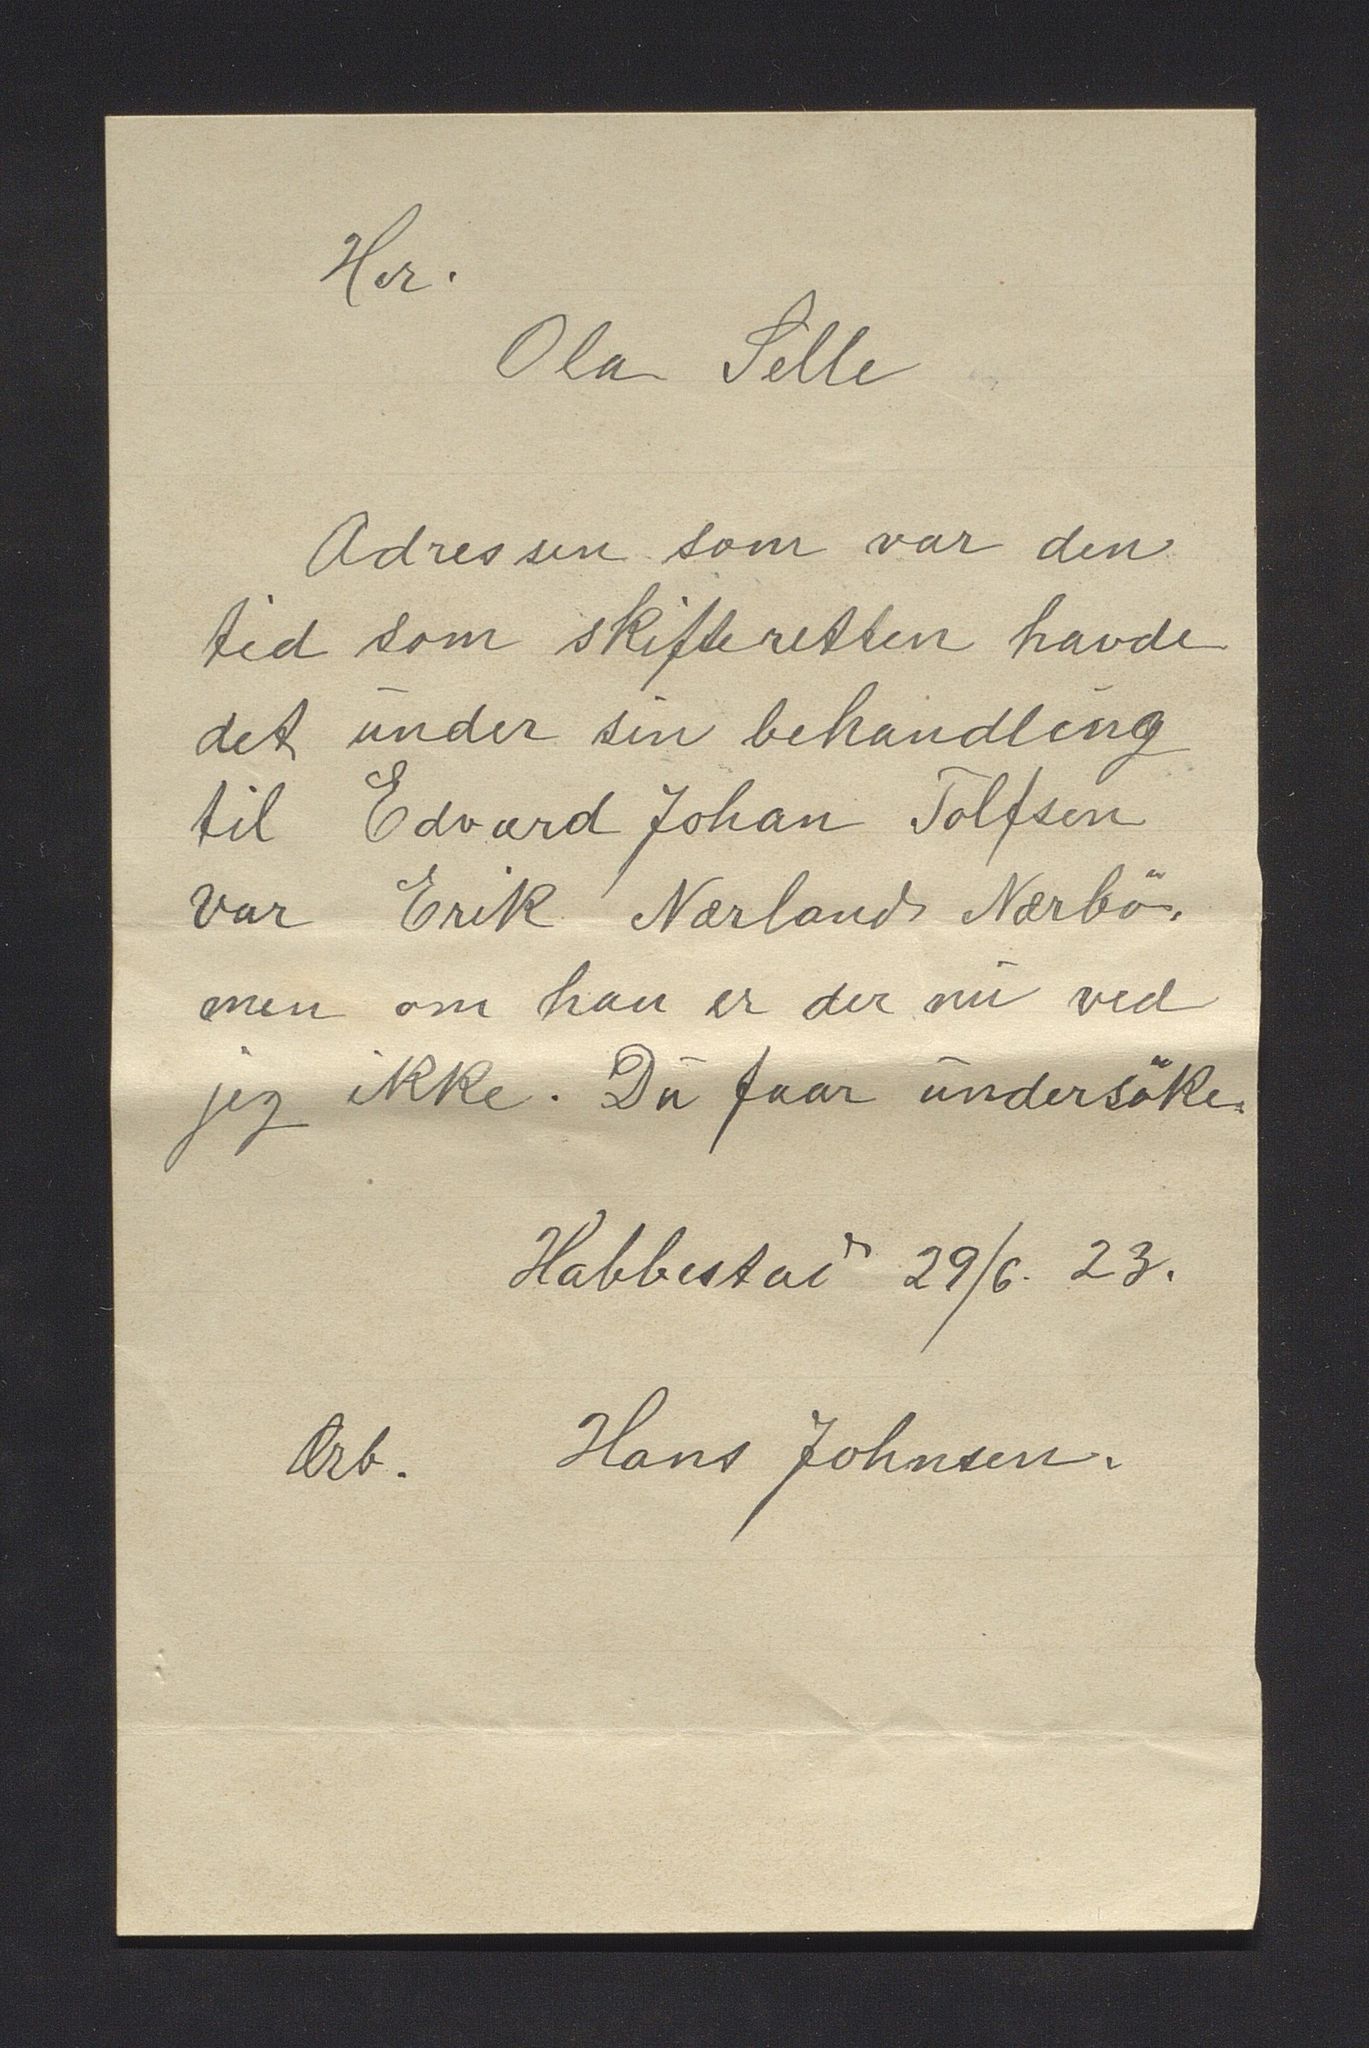 Her.
Ola Selle
Adressen som var den
tid som skifteretten havde
det under sin behandling
til Edvard Johan Tolfsen
var Erik Nærland Nærbö.
men om han er der nu ved
jeg ikke. Du faar undersöke.
Habbestad 29/6. 23.
Arb. Hans Johnsen.